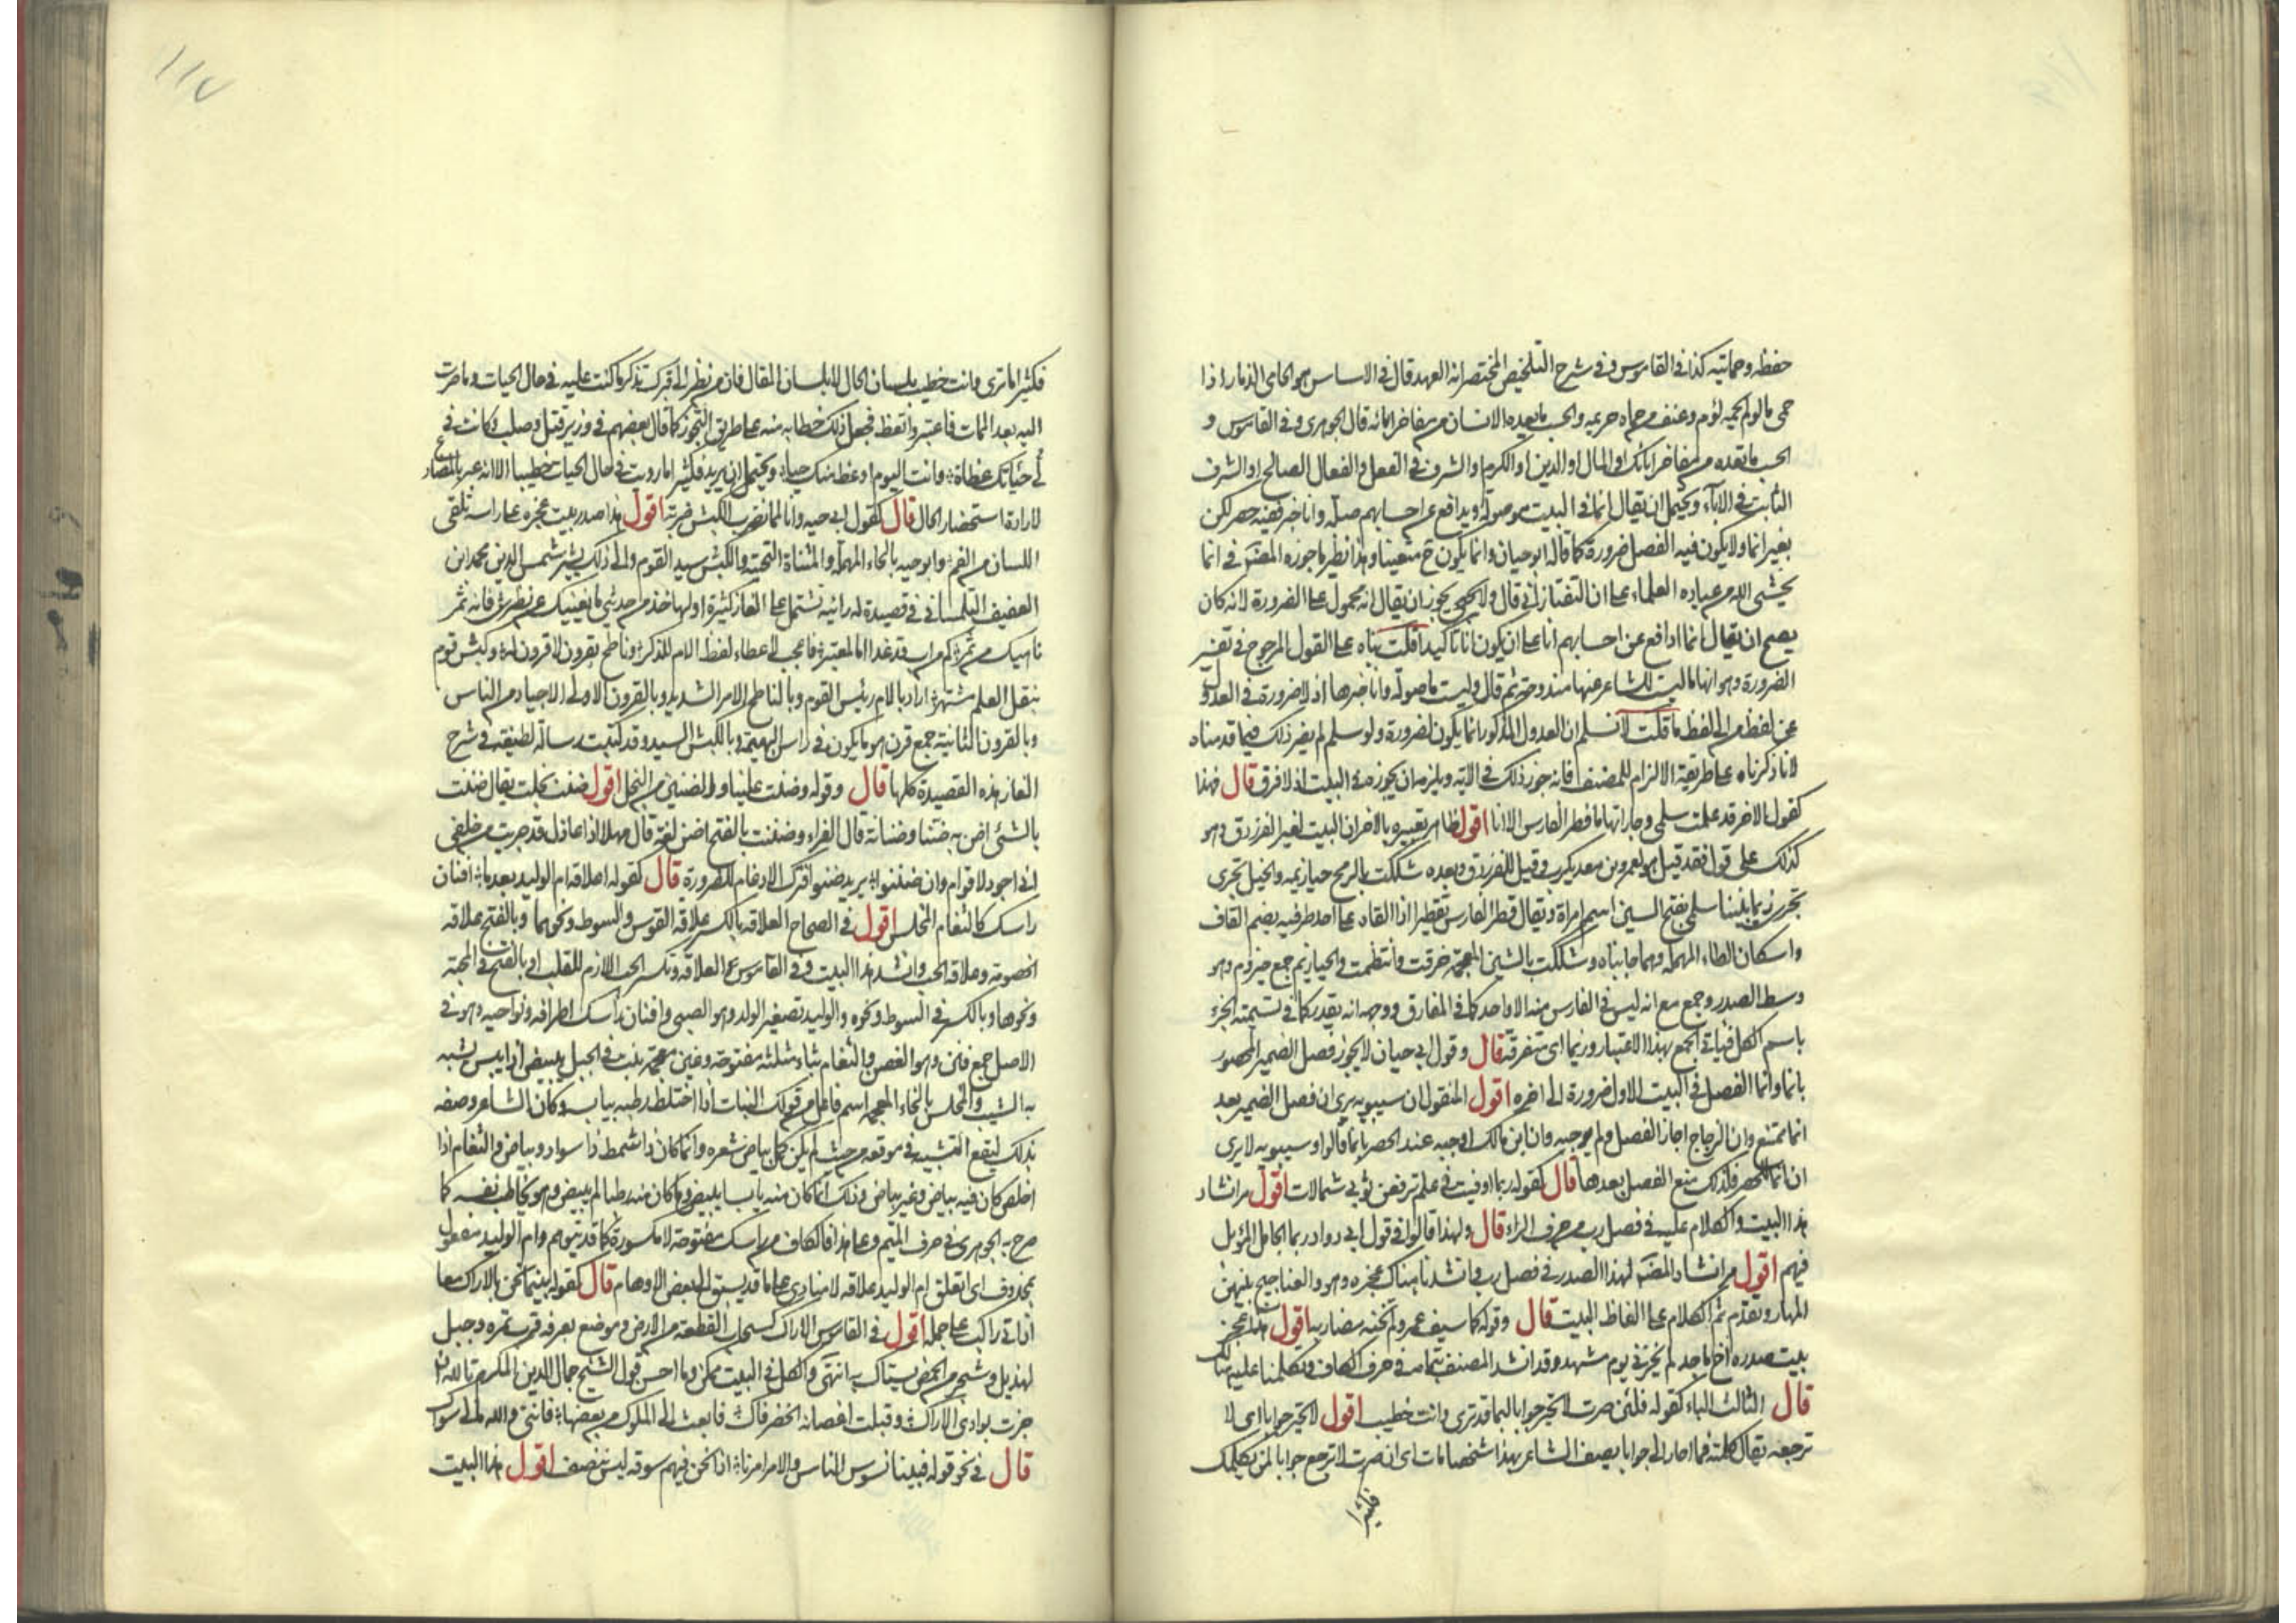 حفظه وحمايته كذا في القاموس وفي شرح التلخيص المختصر انه العهد قال في الاساس هو الحامي الذمار اذا
حمى ما لو لم يحمه لؤم وعنف من حماه حريمه والحسب ما يعده الانسان من مفاخر ابائه قال الجوهري وفي القاموس و
الحسب ما تعده من مفاخر ابائك او المال او الدين او الكرم او الشرف في الفعل او الفعال الصالح او الشرف
الثابت في الآباء ويحتمل ان يقال انما في البيت موصولة ويدافع عن احسابهم صلة وانا خبر ففيه حصر لكن
بغير انما ولا يكون فيه الفصل ضرورة كما قاله ابو حيان وانما يكون ح متعينا وهذا نظير ما جوزه المصنف في انما
يخشى الله من عباده العلماء على ان التفتازاني قال ولا يجوز ان يقال انه محمول على الضرورة لانه كان
يصح ان يقال انما ادافع عن احسابهم انا على ان يكون انا تاكيدا قلت بناه على القول المرجوح في تفسير
الضرورة وهو انها ما ليست للشاعر عنها مندوحة ثم قال وليست ما موصولة وانا خبرها اذ لا ضرورة في العدول
عن لفظ من الى لفظ ما قلت لا نسلم ان العدول المذكور انما يكون لضرورة ولو سلم لم يضر ذلك فيما قدمناه
لانا ذكرناه على طريقة الالزام للمصنف فانه جوز ذلك في الاية ويلزمه ان يجوز مثله البيت اذ لا فرق قال فهذا
كقول الاخر قد علمت سلمى وجاراتها ما قطر الفارس الا انا اقول ظاهر تعبيره بالاخر ان البيت لغير الفرزدق وهو
كذلك على قول فقد قيل هو لعمرو بن معديكرب وقيل للفرزدق وبعده شككت بالرمح حيازيمه والخيل تجري
زيما بيننا سلمى بفتح السين اسم امراة ويقال قطر الفارس تقطيرا اذا القاه على احد قطريه بضم القاف
واسكان الطاء المهملة وهما جانباه وشككت بالشين المعجمة خرقت وانتظمت والحيازيم جمع حيزوم وهو
وسط الصدر وجمع مع انه ليس في الفارس منه الا واحد كما في المفارق ووجهه انه يقدر كما في تسمية الجزء
باسم الكل فياتي الجمع بهذا الاعتبار وزيما اي متفرقة قال وقول ابي حيان لا يجوز فصل الضمير المحصور
بانما وانما الفصل في البيت الاول ضرورة الى اخره اقول المنقول ان سيبويه يرى ان فصل الضمير بعد
انما ممتنع وان الزجاج اجاز الفصل ولم يوجبه وان ابن مالك اوجبه عند الحصر بانما قالوا وسيبويه لا يرى
ان انما للحصر فلذلك منع الفصل بعدها قال كقوله ربما اوفيت في علم ترفعن ثوبي شمالات اقول مر انشاد
هذا البيت والكلام عليه في فصل رب من حرف الراء قال ولهذا قالوا في قول ابي دواد ربما الجامل المؤبل
فيهم اقول مر انشاد المصنف لهذا الصدر في فصل رب وانشدنا هناك عجزه وهو والعناجيج بينهن
المهار وتقدم ثم الكلام على الفاظ البيت قال وقوله كما سيف عمرو لم تخنه مضاربه اقول هذا عجز
بيت صدره اخ ماجد لم يخزني يوم مشهد وقد انشد المصنف بتمامه في حرف الكاف وتكلمنا عليه هنالك
قال الثالث الباء كقوله فلئن صرت لا تحير جوابا لبما قد ترى وانت خطيب اقول لا تحير جوابا اي لا
ترجعه يقال كلمته فما احار الي جوابا يصف الشاعر بهذا شخصا مات اي ان صرت لا ترجع جوابا لمن يكلمك
فكثيرا
١١٧
فكثيرا ما ترى وانت خطيب بلسان الحال لا بلسان المقال فان من نظر الى قبرك تذكر ما كنت عليه في حال الحيات وما صرت
اليه بعد الممات فاعتبر واتعظ فجعل ذلك خطابه منه على طريق التجوز كما قال بعضهم في وزير قتل وصلب وكانت في
في حياتك عظات وانت اليوم اوعظ منك حيا ويحتمل ان يريد فكثيرا ما رويت في حال الحيات خطيبا الا انه عبر بالمضارع
لارادة استحضار الحال قال كقول ابي حية وانا لمما نضرب الكبش ضربة اقول هذا صدر بيت عجزه على راسه تلقي
اللسان من الفم وابو حية بالحاء المهملة والمثناة التحتية والكبش سيد القوم والى ذلك يشير شمس الدين محمد ابن
العفيف التلمساني في قصيدة له رائية تشتمل على الغاز كثيرة اولها خذ من حديثي ما يغنيك عن نظري فانه ثمر
ناهيك من ثمر كم من اب قد غدا اما لمعتبر فاعجب لاعطاء لفظ الام للذكر وناطح بقرون لا قرون له وكبش قوم
بنقل العلم مشتهر اراد بالام رئيس القوم وبالناطح الامر الشديد وبالقرون الاولى الاجياد من الناس
وبالقرون الثانية جمع قرن هو ما يكون في راس البهيمة وبالكبش السيد وقد كتبت رسالة لطيفة في شرح
الغاز هذه القصيدة كلها قال وقوله وضنت علينا والضنين من البخل اقول ضنت بخلت يقال ضننت
بالشئ اضن به ضنا وضنانة قال الفراء وضننت بالفتح اضن لغة قال مهلا اعاذل قد جربت من خلقي
اني اجود لاقوام وان ضننوا يريد ضنوا فترك الادغام للضرورة قال كقوله اعلاقة ام الوليد بعدما افنان
راسك كالثغام المخلس اقول في الصحاح العلاقة بالكسر علاقة القوس والسوط ونحوهما وبالفتح علاقة
الخصومة وعلاقة الحب وانشد هذا البيت وفي القاموس العلاقة وتكسر الحب اللازم للقلب او بالفتح في المحبة
ونحوها وبالكسر في السوط ونحوه والوليد تصغير الولد وهو الصبي وافنان راسك اطرافه ونواحيه وهو في
الاصل جمع فنن وهو الغصن والثغام بثاء مثلثة مفتوحة وغين معجمة نبت في الجبل يبيض اذا يبس يشبه
به الشيب والمخلس بالخاء المعجمة اسم فاعل من قولك النبات اذا اختلط رطبه بيابسه وكان الشاعر وصفه
بذلك ليقع التشبيه في موقعه من حيث لم يكن كمل بياض شعره وانما كان ذا شمط ذا سواد وبياض والثغام اذا
اخلس كان فيه بياض وغير بياض وذلك انما كان منه يابسا يبيض وما كان منه رطبا لم يبيض وهو يخاطب نفسه كما
صرح به الجوهري في حرف الميم وعلى هذا فالكاف من راسك مفتوحة لا مكسورة كما قد يتوهم وام الوليد مفعول
بمحذوف اي اتعلق ام الوليد علاقة لا منادى على ما قد يسبق الى بعض الاوهام قال كقوله بينما نحن بالاراك معا
اذ اتى راكب على جمله اقول في القاموس الاراك كسحاب القطعة من الارض وموضع بعرفة قرب نمرة وجبل
لهذيل وشجر من الحمض يستاك به انتهى والكل في البيت ممكن وما احسن قول الشيخ جمال الدين المكرم تالله ان
جزت بوادي الاراك وقبلت اغصانه الخضر فاك فابعث الى المملوك من بعضها فانني والله مالي سواك
قال في نحو قوله فبينا نسوس الناس والامر امرنا اذا نحن فيهم سوقة ليس ننصف اقول هذا البيت